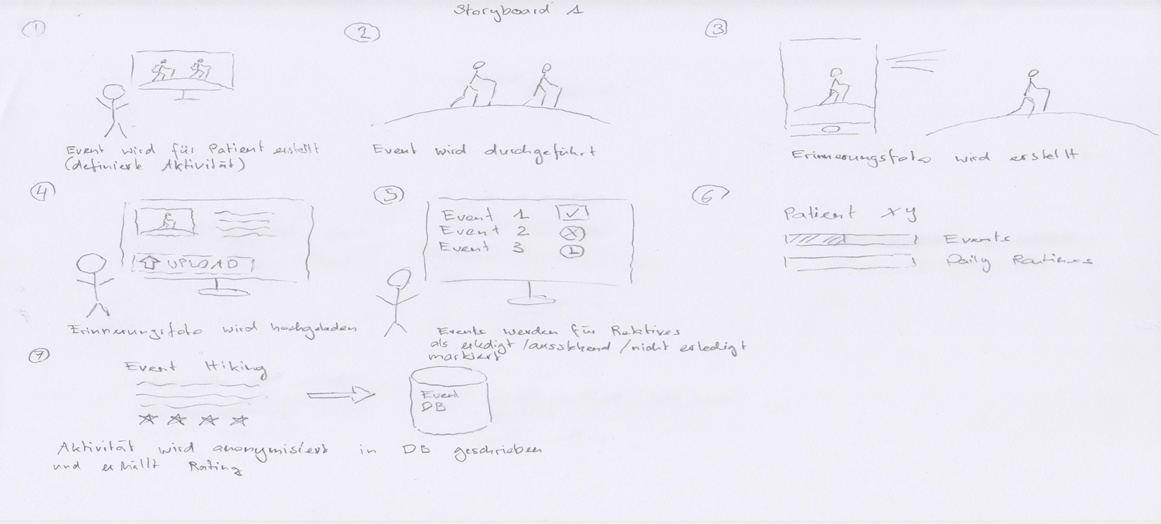 Storyboard 1
1
Event wird für Patient erstellt
(definierte Aktivität)
2
Event wird durchgeführt
3
Erinnerungsfoto wird erstellt
4
UPLOAD
Erinnerungsfoto wird hochgeladen
5
Event 1
Event 2
Event 3
Events werden für Relatives
als erledigt/ausstehend/nicht erledigt
markiert
6
Patient XY
Events
Daily Routines
7
Event Hiking
Event
DB
Aktivität wird anonymisiert in DB geschrieben
und erhällt Rating